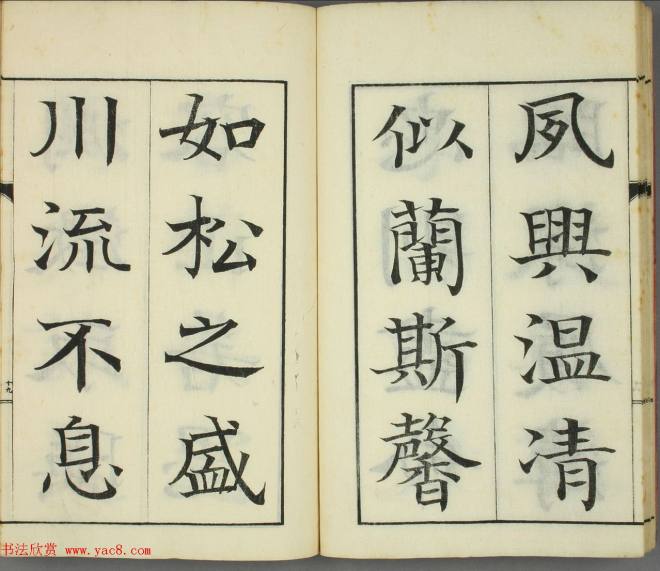 夙興温凊
似蘭斯馨
如松之盛
川流不息
十九
书法欣赏 www.yac8.com